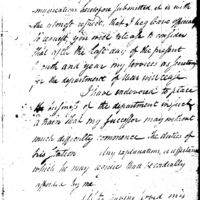 munications heretofore submitted it is with
the utmost respect, that I beg leave
to request, you will please to consider
that after the last day of the present
month and year my services as
for the department of War will cease.
I have endeavored to place
the business of the department in such
a train that my successor may without
much difficulty commence the duties of
his station. Any explanation, or assistance
which he may require shall be cordially
afforded by me.
having